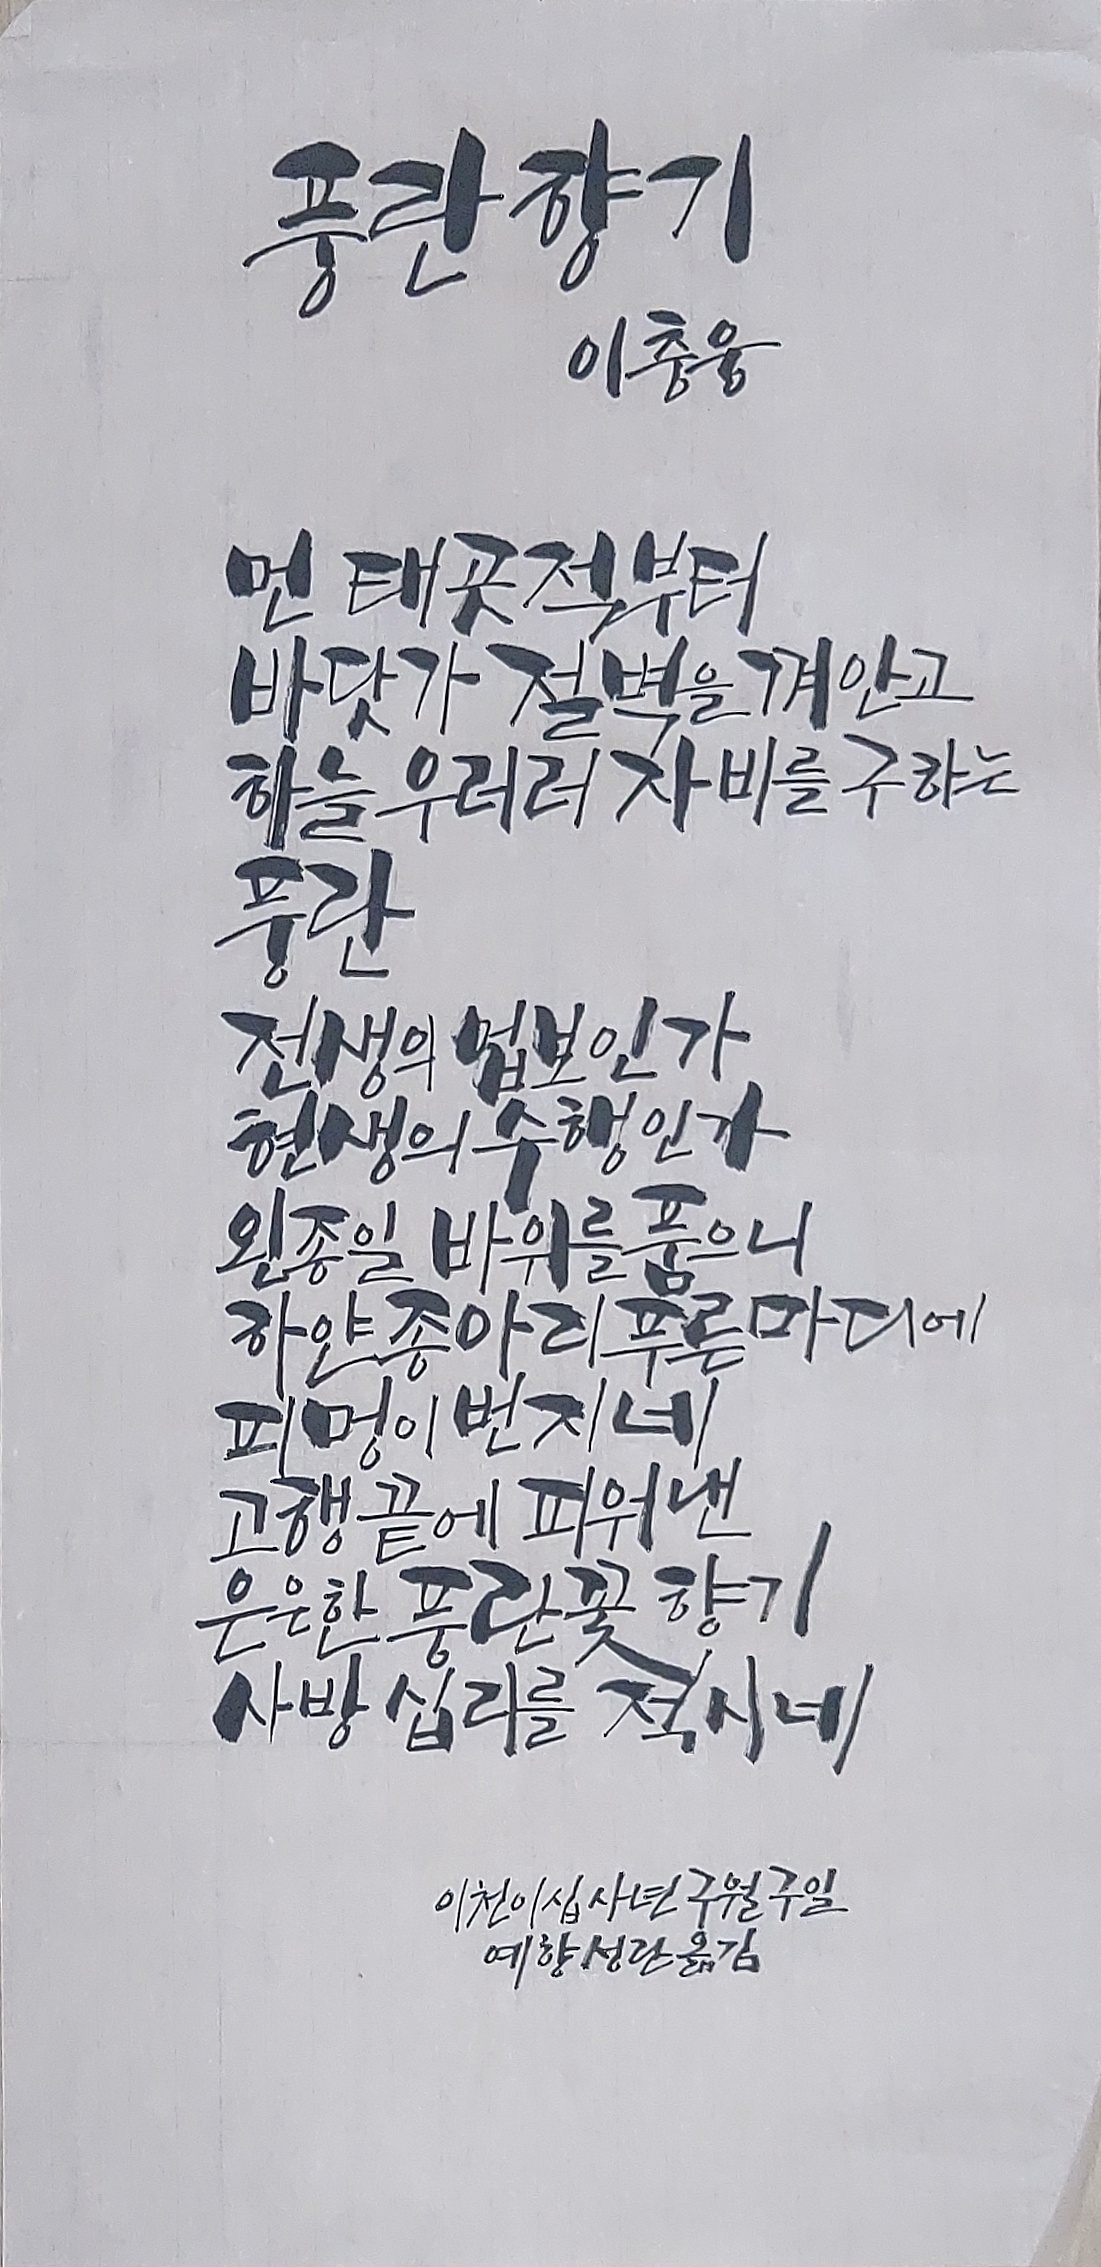 풍란 향기
이충웅
먼 태곳적부터
바닷가 절벽을 껴안고
하늘 우러러 자비를 구하는
풍란
전생의 업보인가
현생의 수행인가
왼종일 바위를 품으니
하얀 종아리 푸른 마디에
피멍이 번지네
고행 끝에 피워낸
은은한 풍란꽃 향기
사방 십리를 적시네
이천이십사년 구월 구일
예향 성란 옮김